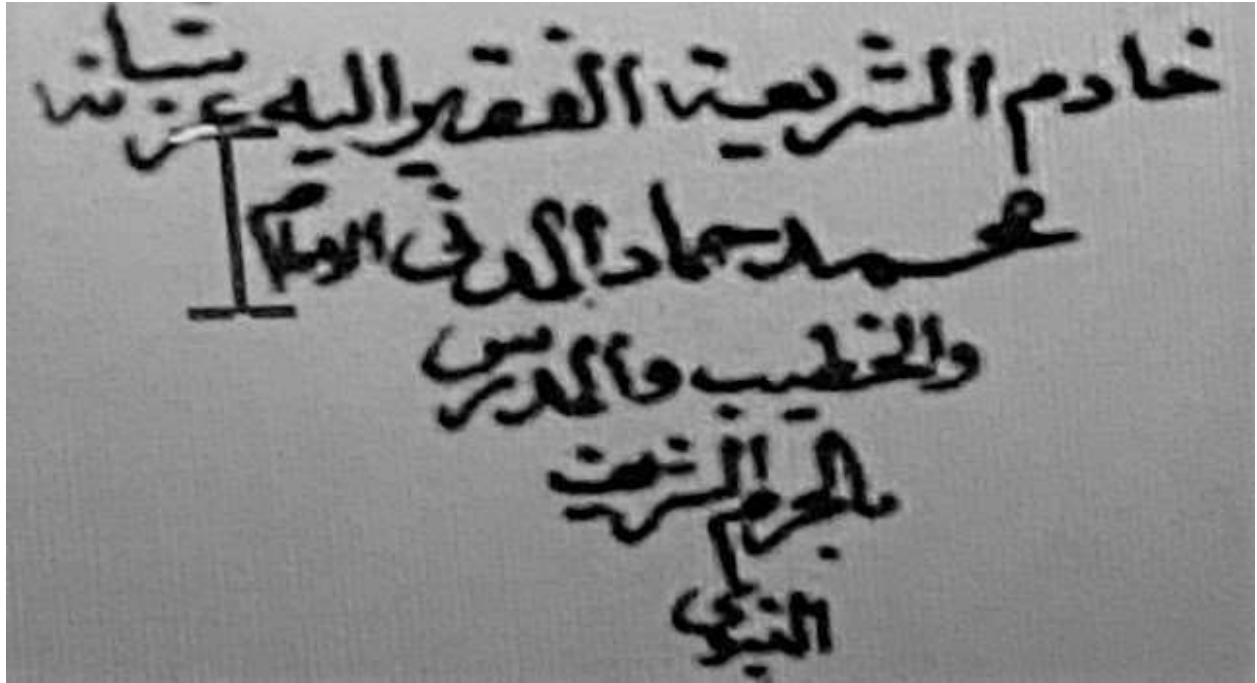 خادم الشريعة الفقير اليه عز شانه
محمد حماد المدنى الامام
والخطيب والمدرس
بالحرم الشريف
النبوى